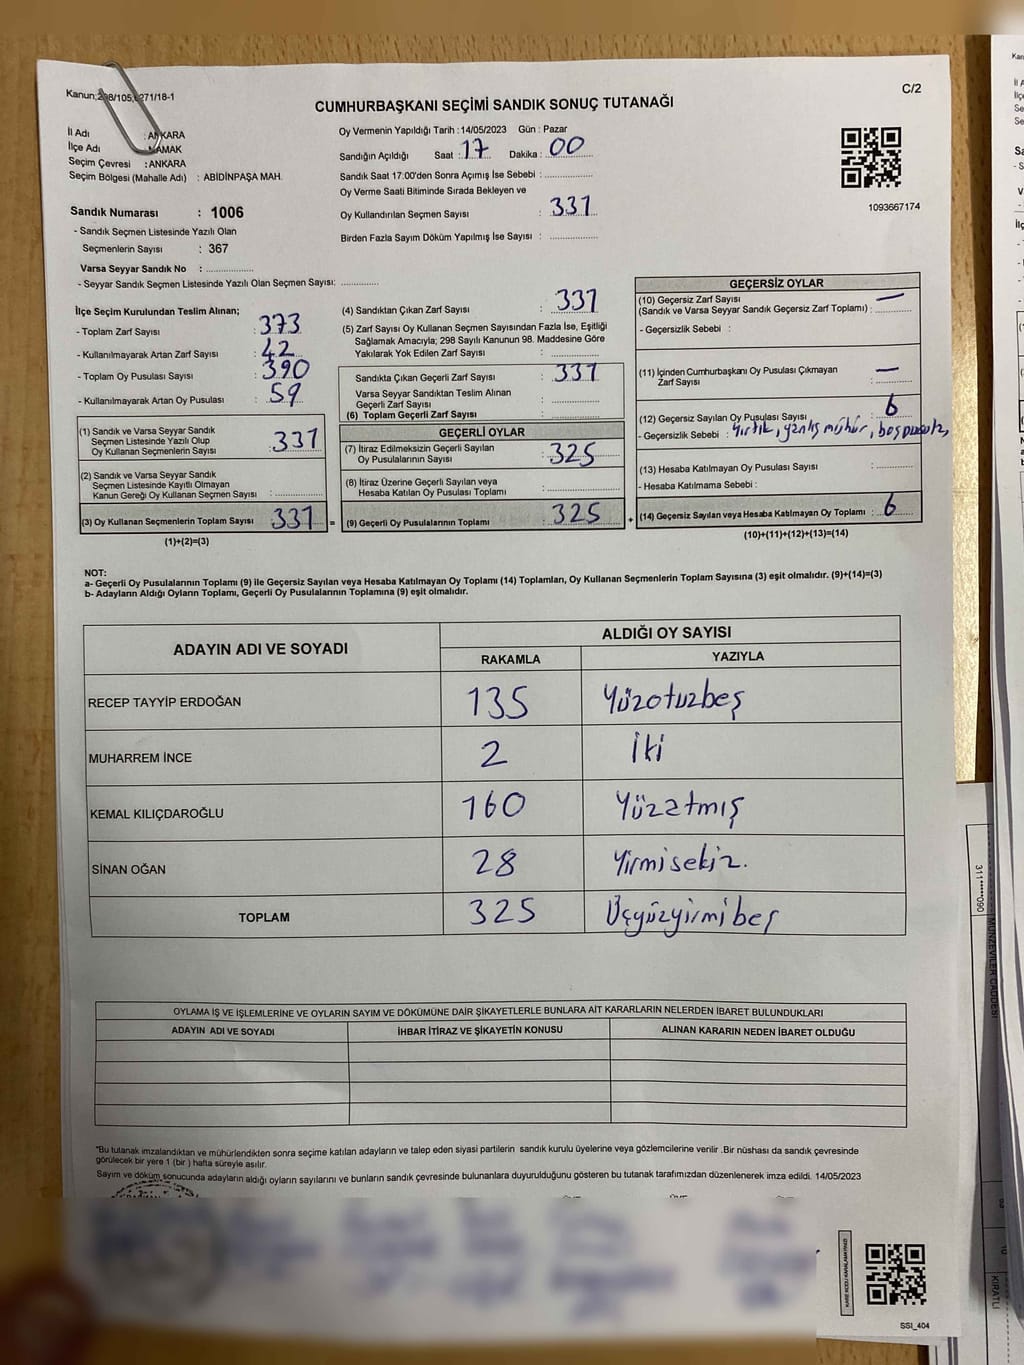 Kanun;298/105,6271/18-1
C/2
CUMHURBAŞKANI SEÇİMİ SANDIK SONUÇ TUTANAĞI
İl Adı : ANKARA
İlçe Adı : MAMAK
Seçim Çevresi : ANKARA
Seçim Bölgesi (Mahalle Adı) : ABİDİNPAŞA MAH.
Oy Vermenin Yapıldığı Tarih : 14/05/2023 Gün : Pazar
Sandığın Açıldığı Saat : 17 Dakika : 00
Sandık Saat 17:00'den Sonra Açımış İse Sebebi :
Oy Verme Saati Bitiminde Sırada Bekleyen ve
Oy Kullandırılan Seçmen Sayısı : 331
Birden Fazla Sayım Döküm Yapılmış İse Sayısı :
1093667174
Sandık Numarası : 1006
- Sandık Seçmen Listesinde Yazılı Olan
Seçmenlerin Sayısı : 367
Varsa Seyyar Sandık No :
- Seyyar Sandık Seçmen Listesinde Yazılı Olan Seçmen Sayısı:
İlçe Seçim Kurulundan Teslim Alınan;
- Toplam Zarf Sayısı : 373
- Kullanılmayarak Artan Zarf Sayısı : 42
- Toplam Oy Pusulası Sayısı : 390
- Kullanılmayarak Artan Oy Pusulası : 59
(1) Sandık ve Varsa Seyyar Sandık
Seçmen Listesinde Yazılı Olup
Oy Kullanan Seçmenlerin Sayısı : 331
(2) Sandık ve Varsa Seyyar Sandık
Seçmen Listesinde Kayıtlı Olmayan
Kanun Gereği Oy Kullanan Seçmen Sayısı :
(3) Oy Kullanan Seçmenlerin Toplam Sayısı 331 =
(1)+(2)=(3)
(4) Sandıktan Çıkan Zarf Sayısı : 331
(5) Zarf Sayısı Oy Kullanan Seçmen Sayısından Fazla İse, Eşitliği
Sağlamak Amacıyla; 298 Sayılı Kanunun 98. Maddesine Göre
Yakılarak Yok Edilen Zarf Sayısı :
Sandıkta Çıkan Geçerli Zarf Sayısı : 331
Varsa Seyyar Sandıktan Teslim Alınan
Geçerli Zarf Sayısı :
(6) Toplam Geçerli Zarf Sayısı :
GEÇERLİ OYLAR
(7) İtiraz Edilmeksizin Geçerli Sayılan
Oy Pusulalarının Sayısı : 325
(8) İtiraz Üzerine Geçerli Sayılan veya
Hesaba Katılan Oy Pusulası Toplamı :
(9) Geçerli Oy Pusulalarının Toplamı : 325 +
GEÇERSİZ OYLAR
(10) Geçersiz Zarf Sayısı —
(Sandık ve Varsa Seyyar Sandık Geçersiz Zarf Toplamı) :
- Geçersizlik Sebebi :
(11) İçinden Cumhurbaşkanı Oy Pusulası Çıkmayan —
Zarf Sayısı :
(12) Geçersiz Sayılan Oy Pusulası Sayısı : 6
- Geçersizlik Sebebi : Yırtık, yanlış mühür, boş pusula,
(13) Hesaba Katılmayan Oy Pusulası Sayısı :
- Hesaba Katılmama Sebebi :
(14) Geçersiz Sayılan veya Hesaba Katılmayan Oy Toplamı : 6
(10)+(11)+(12)+(13)=(14)
NOT:
a- Geçerli Oy Pusulalarının Toplamı (9) ile Geçersiz Sayılan veya Hesaba Katılmayan Oy Toplamı (14) Toplamları, Oy Kullanan Seçmenlerin Toplam Sayısına (3) eşit olmalıdır. (9)+(14)=(3)
b- Adayların Aldığı Oyların Toplamı, Geçerli Oy Pusulalarının Toplamına (9) eşit olmalıdır.
ADAYIN ADI VE SOYADI
ALDIĞI OY SAYISI
RAKAMLA YAZIYLA
RECEP TAYYİP ERDOĞAN 135 Yüzotuzbeş
MUHARREM İNCE 2 İki
KEMAL KILIÇDAROĞLU 160 Yüzatmış
SİNAN OĞAN 28 Yirmisekiz.
TOPLAM 325 Üçyüzyirmibeş
OYLAMA İŞ VE İŞLEMLERİNE VE OYLARIN SAYIM VE DÖKÜMÜNE DAİR ŞİKAYETLERLE BUNLARA AİT KARARLARIN NELERDEN İBARET BULUNDUKLARI
ADAYIN ADI VE SOYADI İHBAR İTİRAZ VE ŞİKAYETİN KONUSU ALINAN KARARIN NEDEN İBARET OLDUĞU
*Bu tutanak imzalandıktan ve mühürlendikten sonra seçime katılan adayların ve talep eden siyasi partilerin sandık kurulu üyelerine veya gözlemcilerine verilir .Bir nüshası da sandık çevresinde
görülecek bir yere 1 (bir ) hafta süreyle asılır.
Sayım ve döküm sonucunda adayların aldığı oyların sayılarını ve bunların sandık çevresinde bulunanlara duyurulduğunu gösteren bu tutanak tarafımızdan düzenlenerek imza edildi. 14/05/2023
SSI_404
311******090
MÜNZEVİLER CADDESİ
KIRATLI